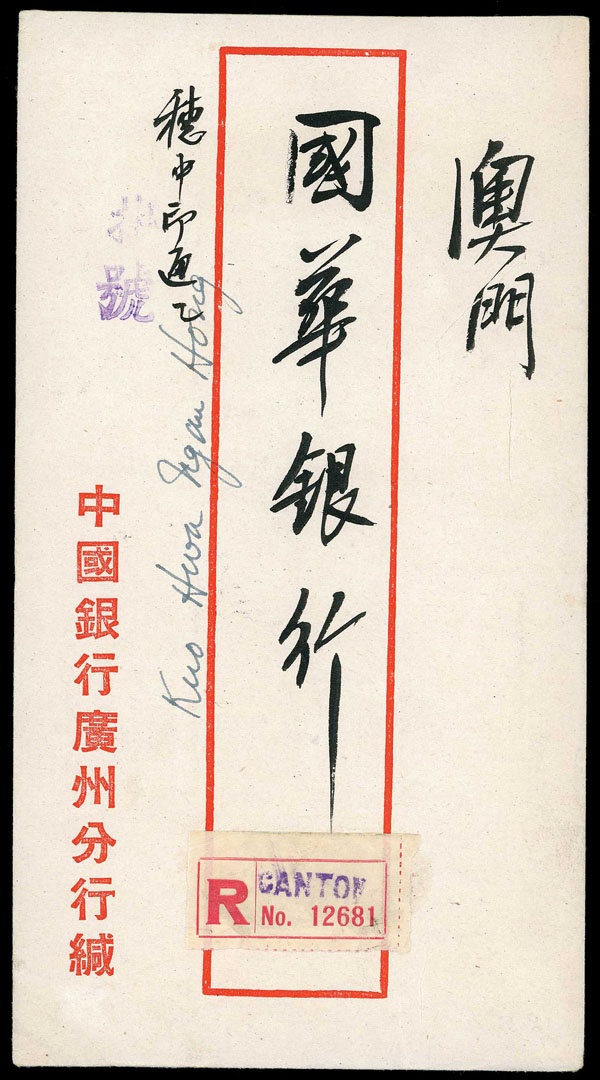 澳門
國華銀行
穗中印通乙
掛號
Kuo Hwa Ngan Hong
中國銀行廣州分行緘
R
CANTON
No. 12681